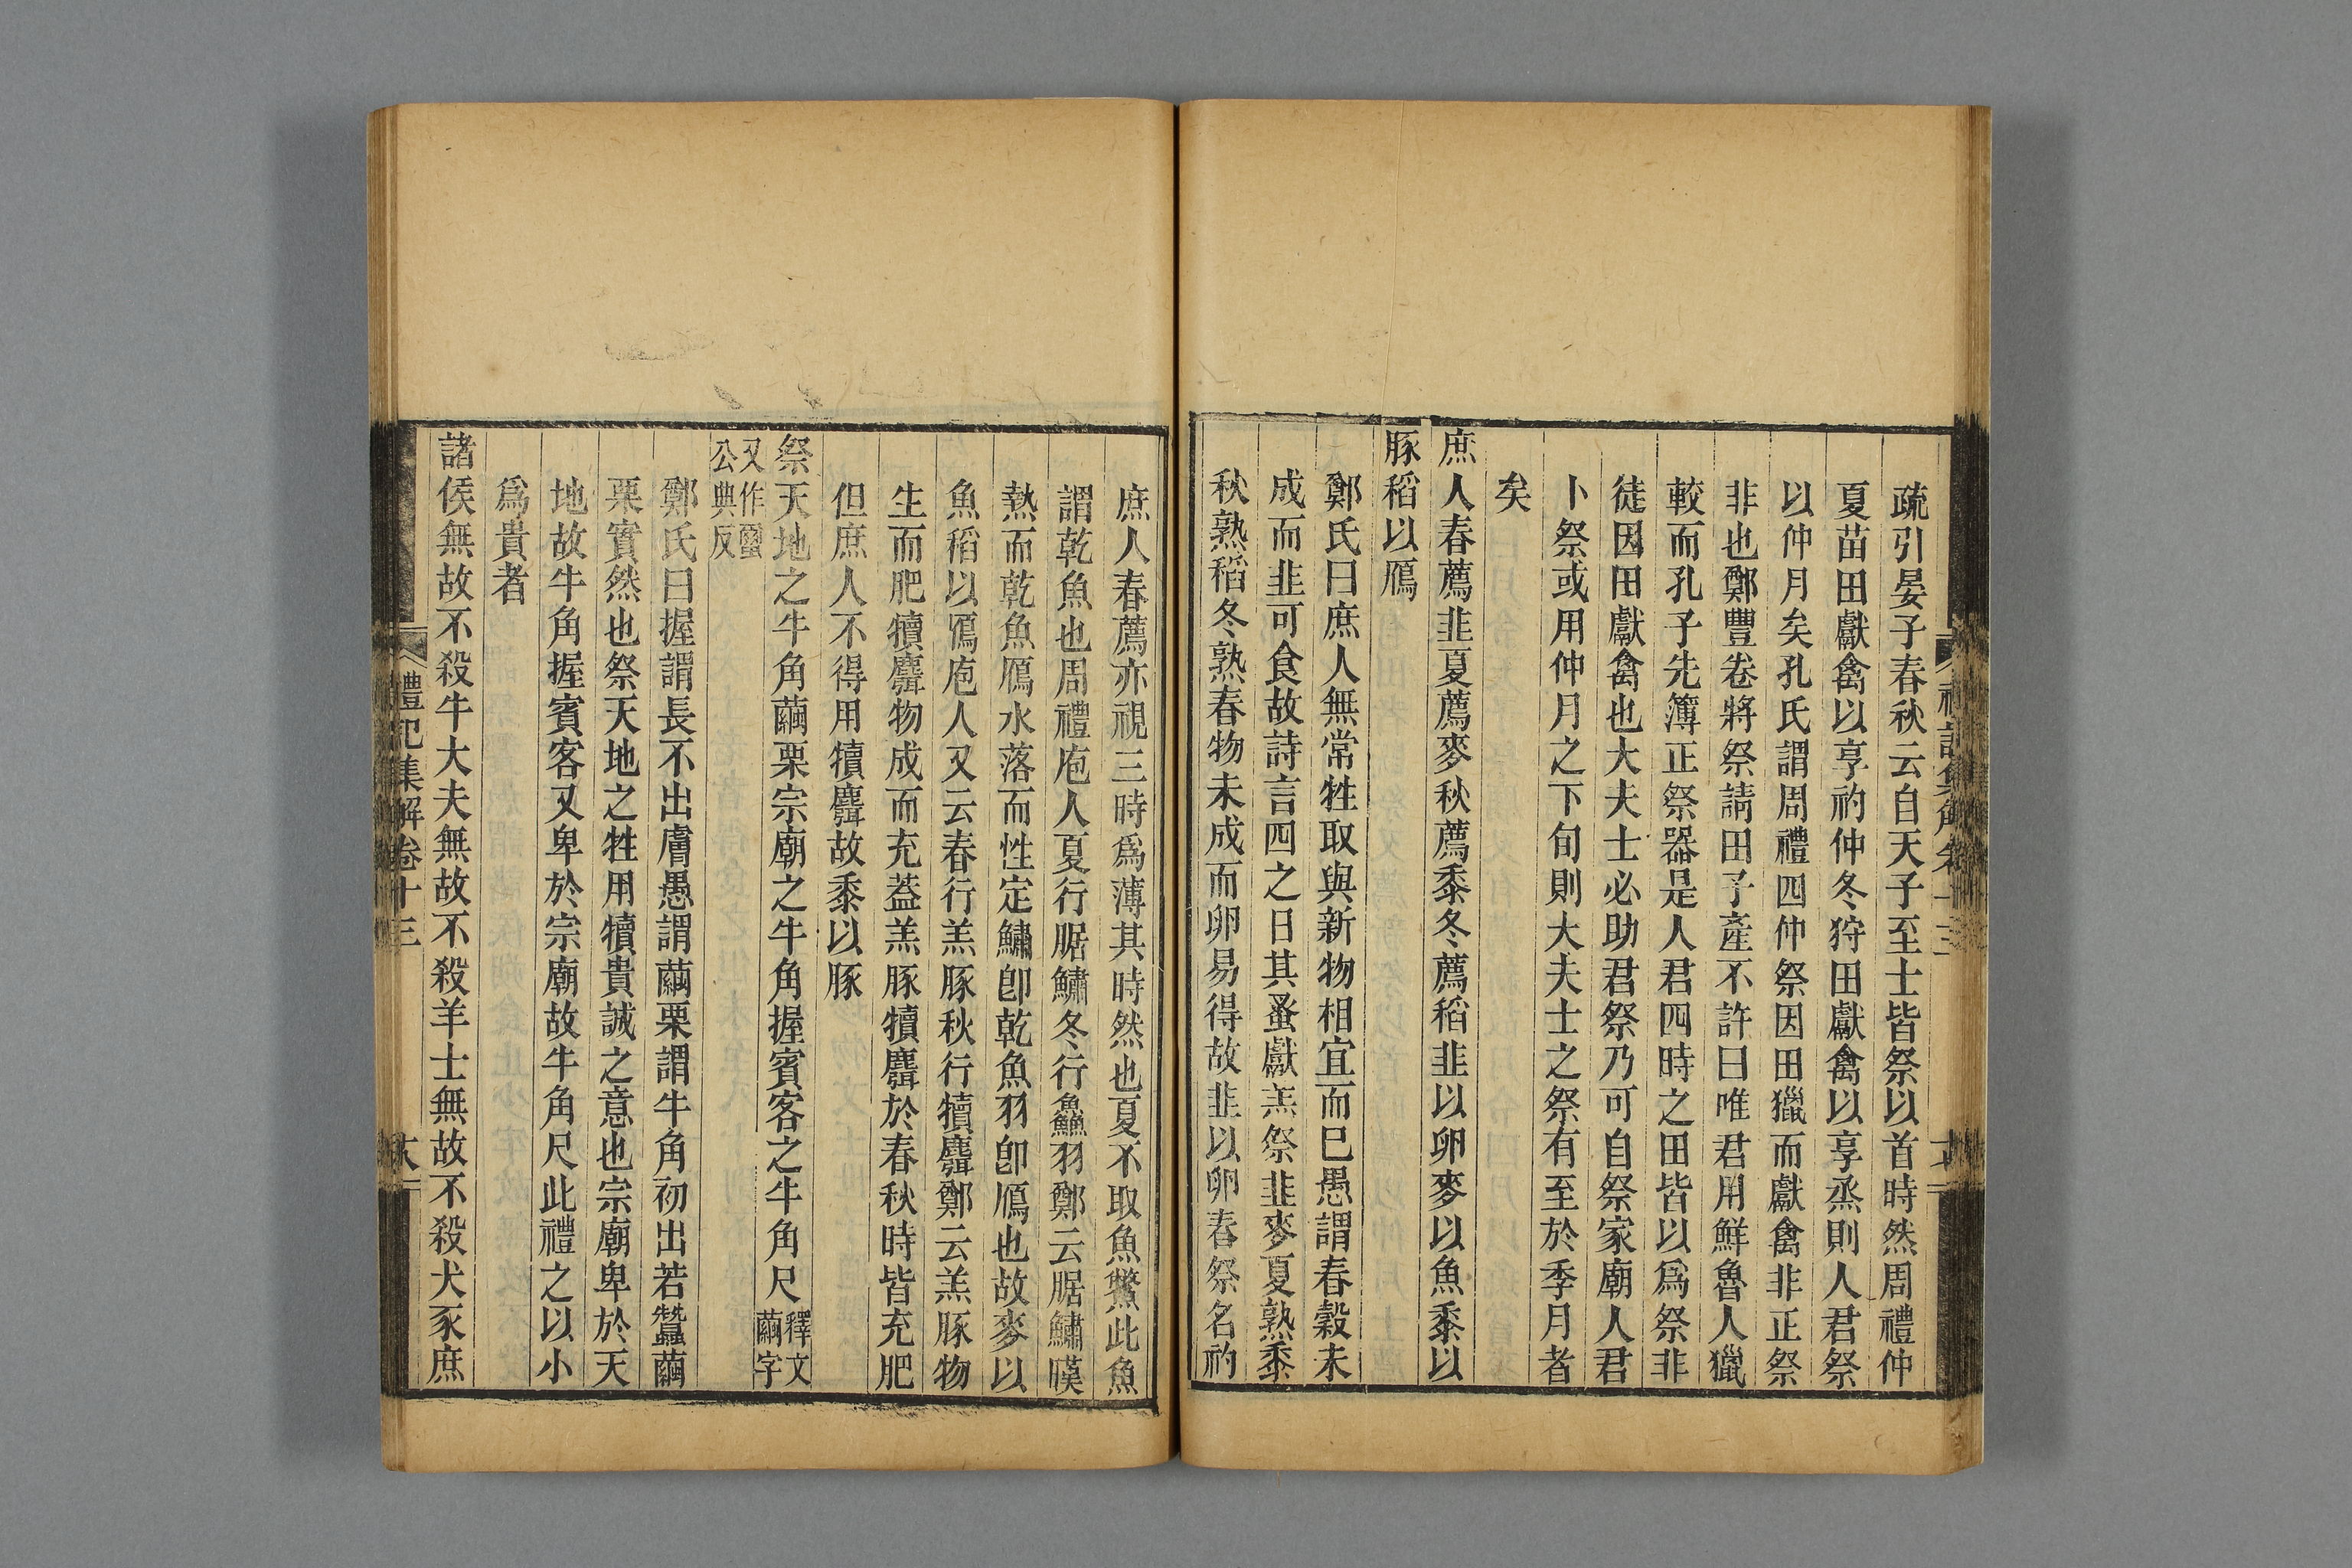 疏引晏子春秋云自天子至士皆祭以首時然周禮仲
夏苗田獻禽以享礿仲冬狩田獻禽以享烝則人君祭
以仲月矣孔氏謂周禮四仲祭因田獵而獻禽非正祭
非也鄭豐卷將祭請田子產不許曰唯君用鮮魯人獵
較而孔子先簿正祭器是人君四時之田皆以爲祭非
徒因田獻禽也大夫士必助君祭乃可自祭家廟人君
卜祭或用仲月之下旬則大夫士之祭有至於季月者
矣
庶人春薦韭夏薦麥秋薦黍冬薦稻韭以卵麥以魚黍以
豚稻以鴈
鄭氏曰庶人無常牲取與新物相宜而已愚謂春穀未
成而韭可食故詩言四之日其蚤獻羔祭韭麥夏熟黍
秋熟稻冬熟春物未成而卵易得故韭以卵春祭名礿
庶人春薦亦視三時爲薄其時然也夏不取魚鱉此魚
謂乾魚也周禮庖人夏行腒鱐冬行鱻羽鄭云腒鱐暵
熱而乾魚鴈水落而性定鱐卽乾魚羽卽鴈也故麥以
魚稻以鴈庖人又云春行羔豚秋行犢麛鄭云羔豚物
生而肥犢麛物成而充蓋羔豚犢麛於春秋時皆充肥
但庶人不得用犢麛故黍以豚
祭天地之牛角繭栗宗廟之牛角握賓客之牛角尺釋文繭字
又作𧝓公典反
鄭氏曰握謂長不出膚愚謂繭栗謂牛角初出若蠶繭
栗實然也祭天地之牲用犢貴誠之意也宗廟卑於天
地故牛角握賓客又卑於宗廟故牛角尺此禮之以小
爲貴者
諸侯無故不殺牛大夫無故不殺羊士無故不殺犬豕庶
禮記集解卷十三